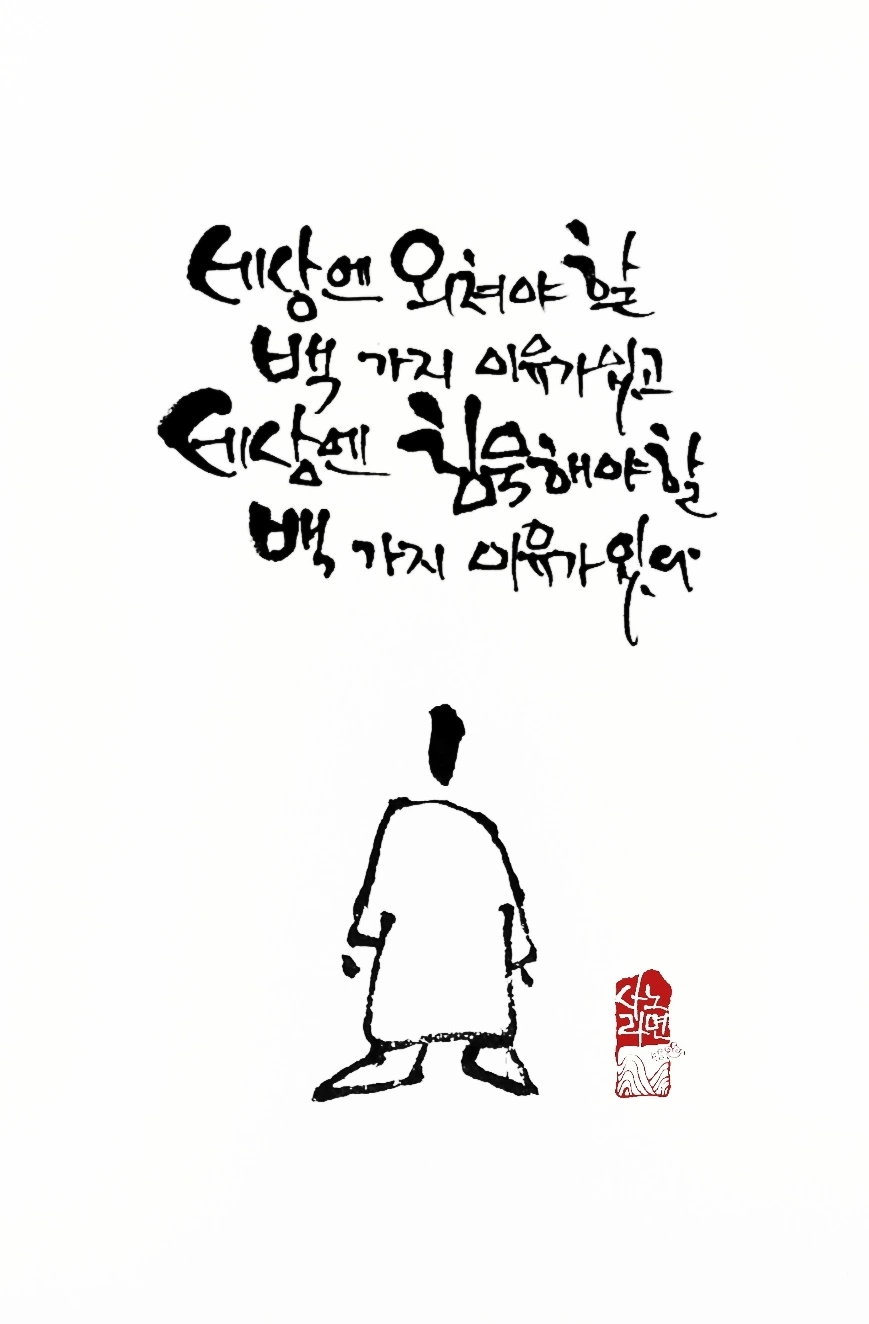 세상엔 외쳐야 할
백 가지 이유가 있고
세상엔 침묵해야 할
백 가지 이유가 있다
사노
라면